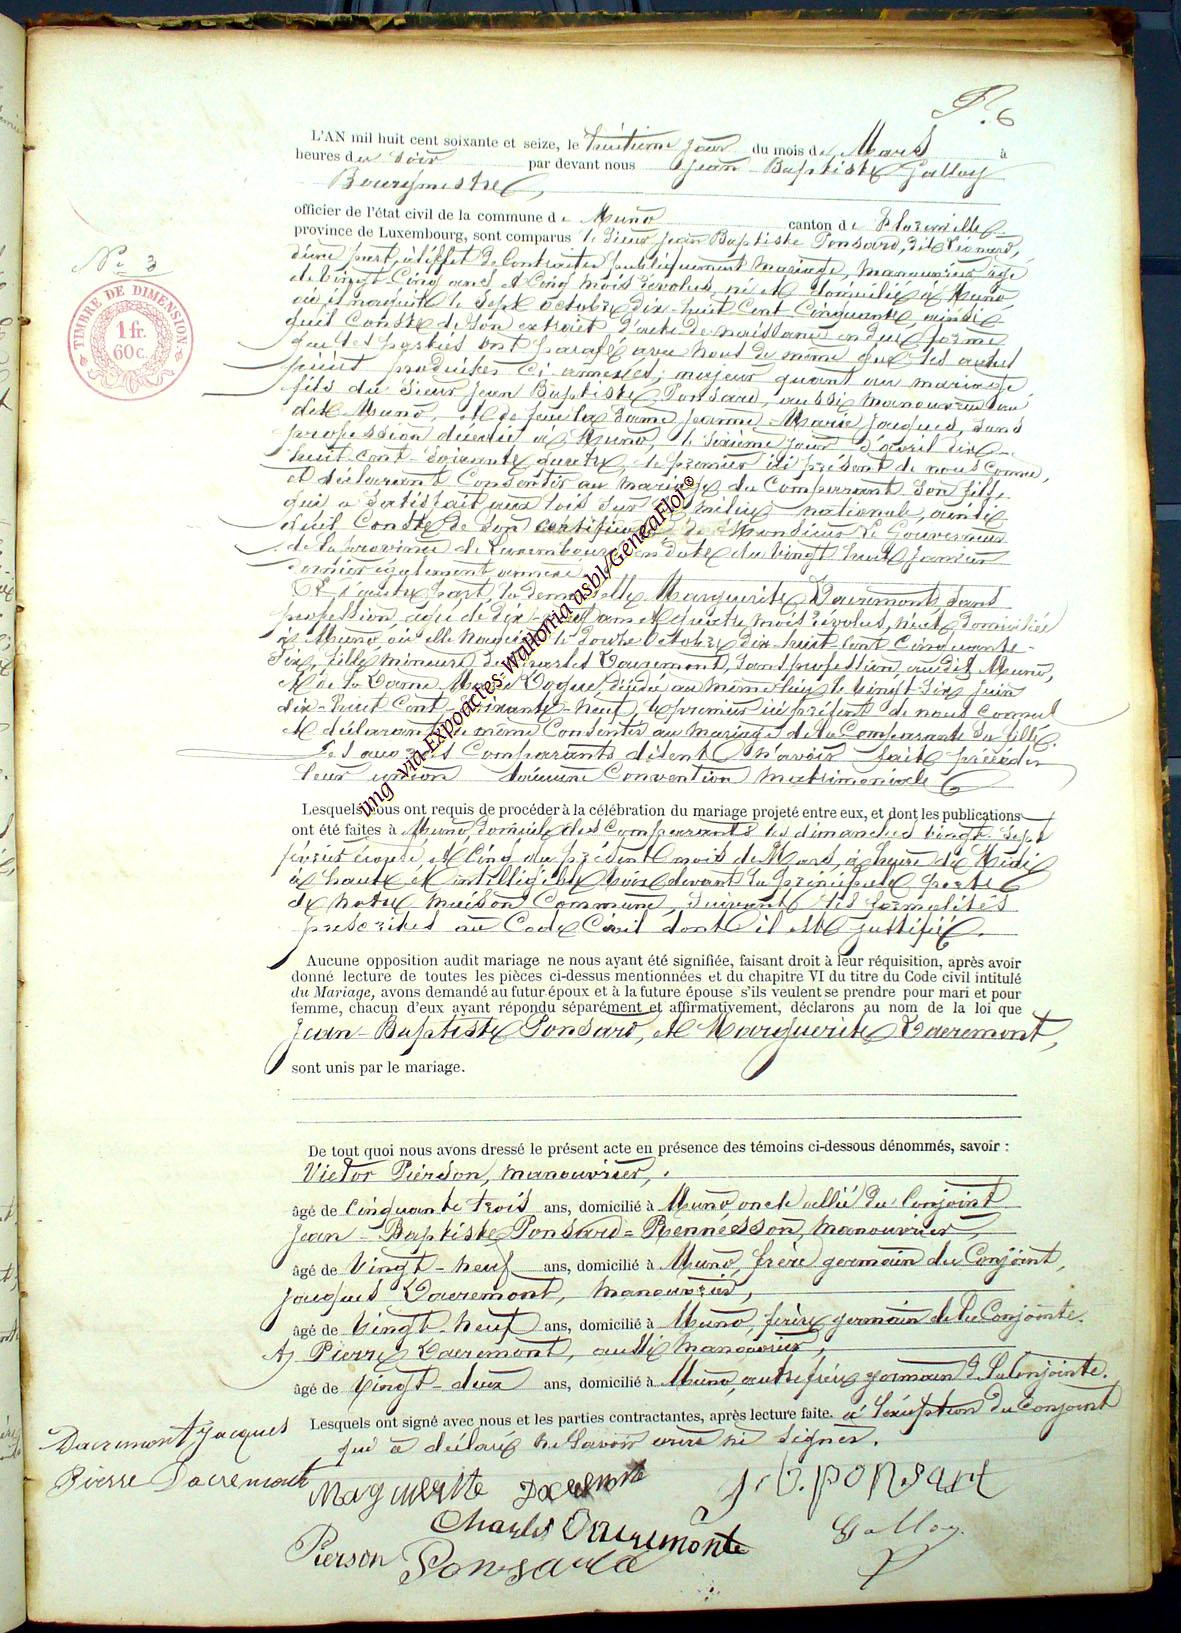 P. 6
L'AN mil huit cent soixante et seize, le huitième jour du mois de Mars à
heures du soir par devant nous Jean Baptiste Galloy
Bourgmestre,
officier de l'état civil de la commune de Muno canton de Florenville
province de Luxembourg, sont comparus le Sieur Jean Baptiste Ponsard, dit Léonard,
d'une part, à l'effet de Contracter publiquement mariage, manouvrier âgé
de vingt Cinq ans et Cinq mois révolus, né et domicilié à Muno,
où il naquit le sept octobre dix huit Cent Cinquante, ainsi
qu'il Conste de son extrait d'acte de naissance en due forme
que les parties ont parafé avec Nous de même que les autres
pièces produites Ci annexées; majeur quant au mariage,
fils du Sieur Jean Baptiste Ponsard, aussi manouvrier au
dit Muno, et de feue la Dame Jeanne-Marie Jacques, sans
profession décédée à Muno, le sixième jour d'avril dix-
huit-cent-soixante quatre, le premier ici présent de nous Connu,
et déclarant Consentir au mariage du Comparant son fils,
qui a satisfait aux lois sur la milice nationale, ainsi
qu'il Conste de son certificat de Monsieur le Gouverneur
de la province de Luxembourg en date du vingt huit Janvier
dernier également annexé
Et d'autre part, la demoiselle Marguerite Dacremont, sans
profession, âgée de dix neuf ans et quatre mois révolus, née et domiciliée
à Muno, où elle naquit le Octobre dix huit cent Cinquante-
Six, fille mineure de Charles Dacremont, sans profession, au dit Muno,
et de la Dame Marie décédée au même lieu le vingt-six juin
dix-huit Cent-soixante-neuf, le premier ici présent de nous Connu
et déclarant de même Consentir au mariage de la Comparante sa fille.
Les auxdits Comparants disent n'avoir fait précéder
leur union d'aucune Convention Matrimoniale
Lesquels nous ont requis de procéder à la célébration du mariage projeté entre eux, et dont les publications
ont été faites à Muno, domicile des Comparants les dimanches vingt-sept
février écoulé, et Cinq du présent mois de Mars, à heure de Midi
à haute et intelligible Voix devant la principale porte
de notre Maison Commune, suivant les formalités
prescrites au Code Civil dont il est justifié.
Aucune opposition audit mariage ne nous ayant été signifiée, faisant droit à leur réquisition, après avoir
donné lecture de toutes les pièces ci-dessus mentionnées et du chapitre VI du titre du Code civil intitulé
du Mariage, avons demandé au futur époux et à la future épouse s'ils veulent se prendre pour mari et pour
femme, chacun d'eux ayant répondu séparément et affirmativement, déclarons au nom de la loi que
Jean-Baptiste Ponsard, et Marguerite Dacremont,
sont unis par le mariage.
De tout quoi nous avons dressé le présent acte en présence des témoins ci-dessous dénommés, savoir :
Victor Pierson, manouvrier,
âgé de Cinquante trois ans, domicilié à Muno oncle allié du Conjoint
Jean-Baptiste Ponsard=Rennesson, Manouvrier,
âgé de Vingt-neuf ans, domicilié à Muno, frère germain du Conjoint,
Jacques Dacremont, Manouvrier,
âgé de Vingt-Neuf ans, domicilié à Muno, frère germain de la Conjointe.
Et Pierre Dacremont, aussi Manouvrier,
âgé de Vingt-deux ans, domicilié à Muno, autre frère germain de la Conjointe.
Lesquels ont signé avec nous et les parties contractantes, après lecture faite. à l'exception du Conjoint
qui a déclaré ne savoir écrire ni signer.
No 3
TIMBRE DE DIMENSION
1 fr.
60 c.
Dacremont Jacques
Pierre Dacremont
Marguerite Dacremont
J. B. Ponsart
Charles Dacremont
Galloy
Pierson
Ponsard
img via Expoactes-Wallonia asbl/GeneaFlor©